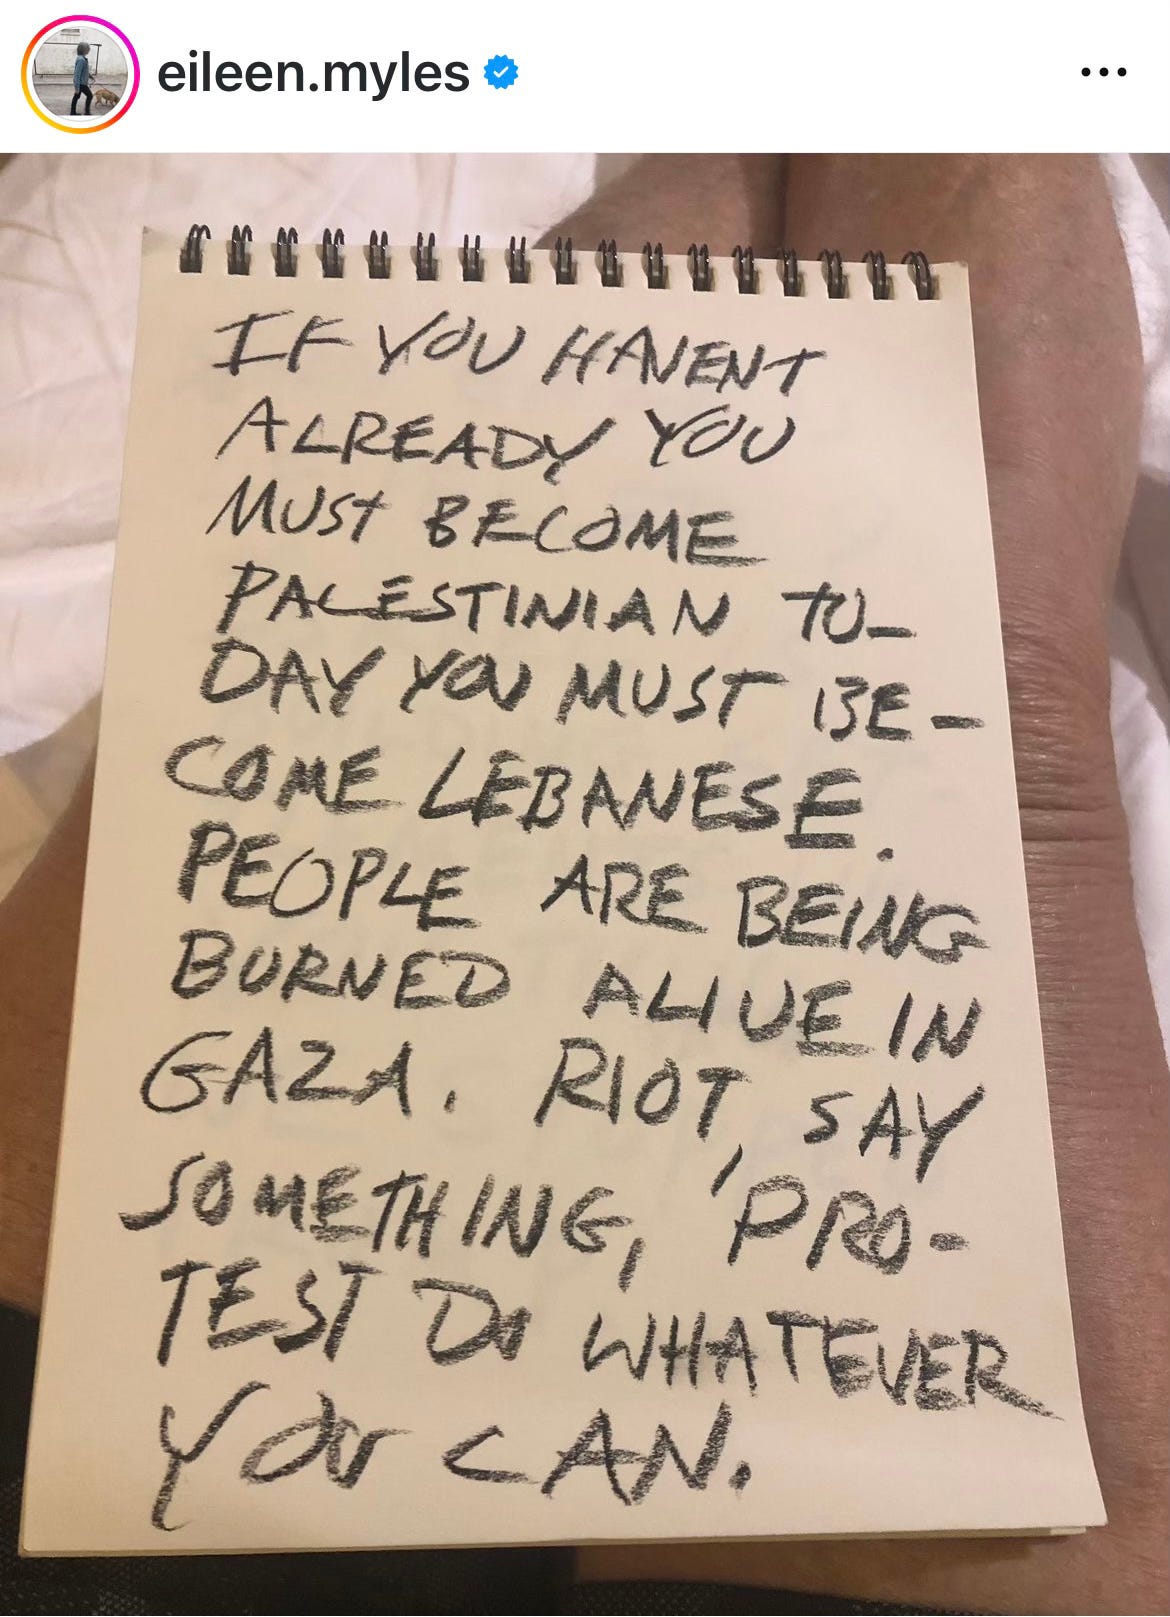 eileen.myles
IF YOU HAVENT
ALREADY YOU
MUST BECOME
PALESTINIAN TO-
DAY YOU MUST BE-
COME LEBANESE.
PEOPLE ARE BEING
BURNED ALIVE IN
GAZA. RIOT, SAY
SOMETHING, PRO-
TEST DO WHATEVER
YOU CAN.